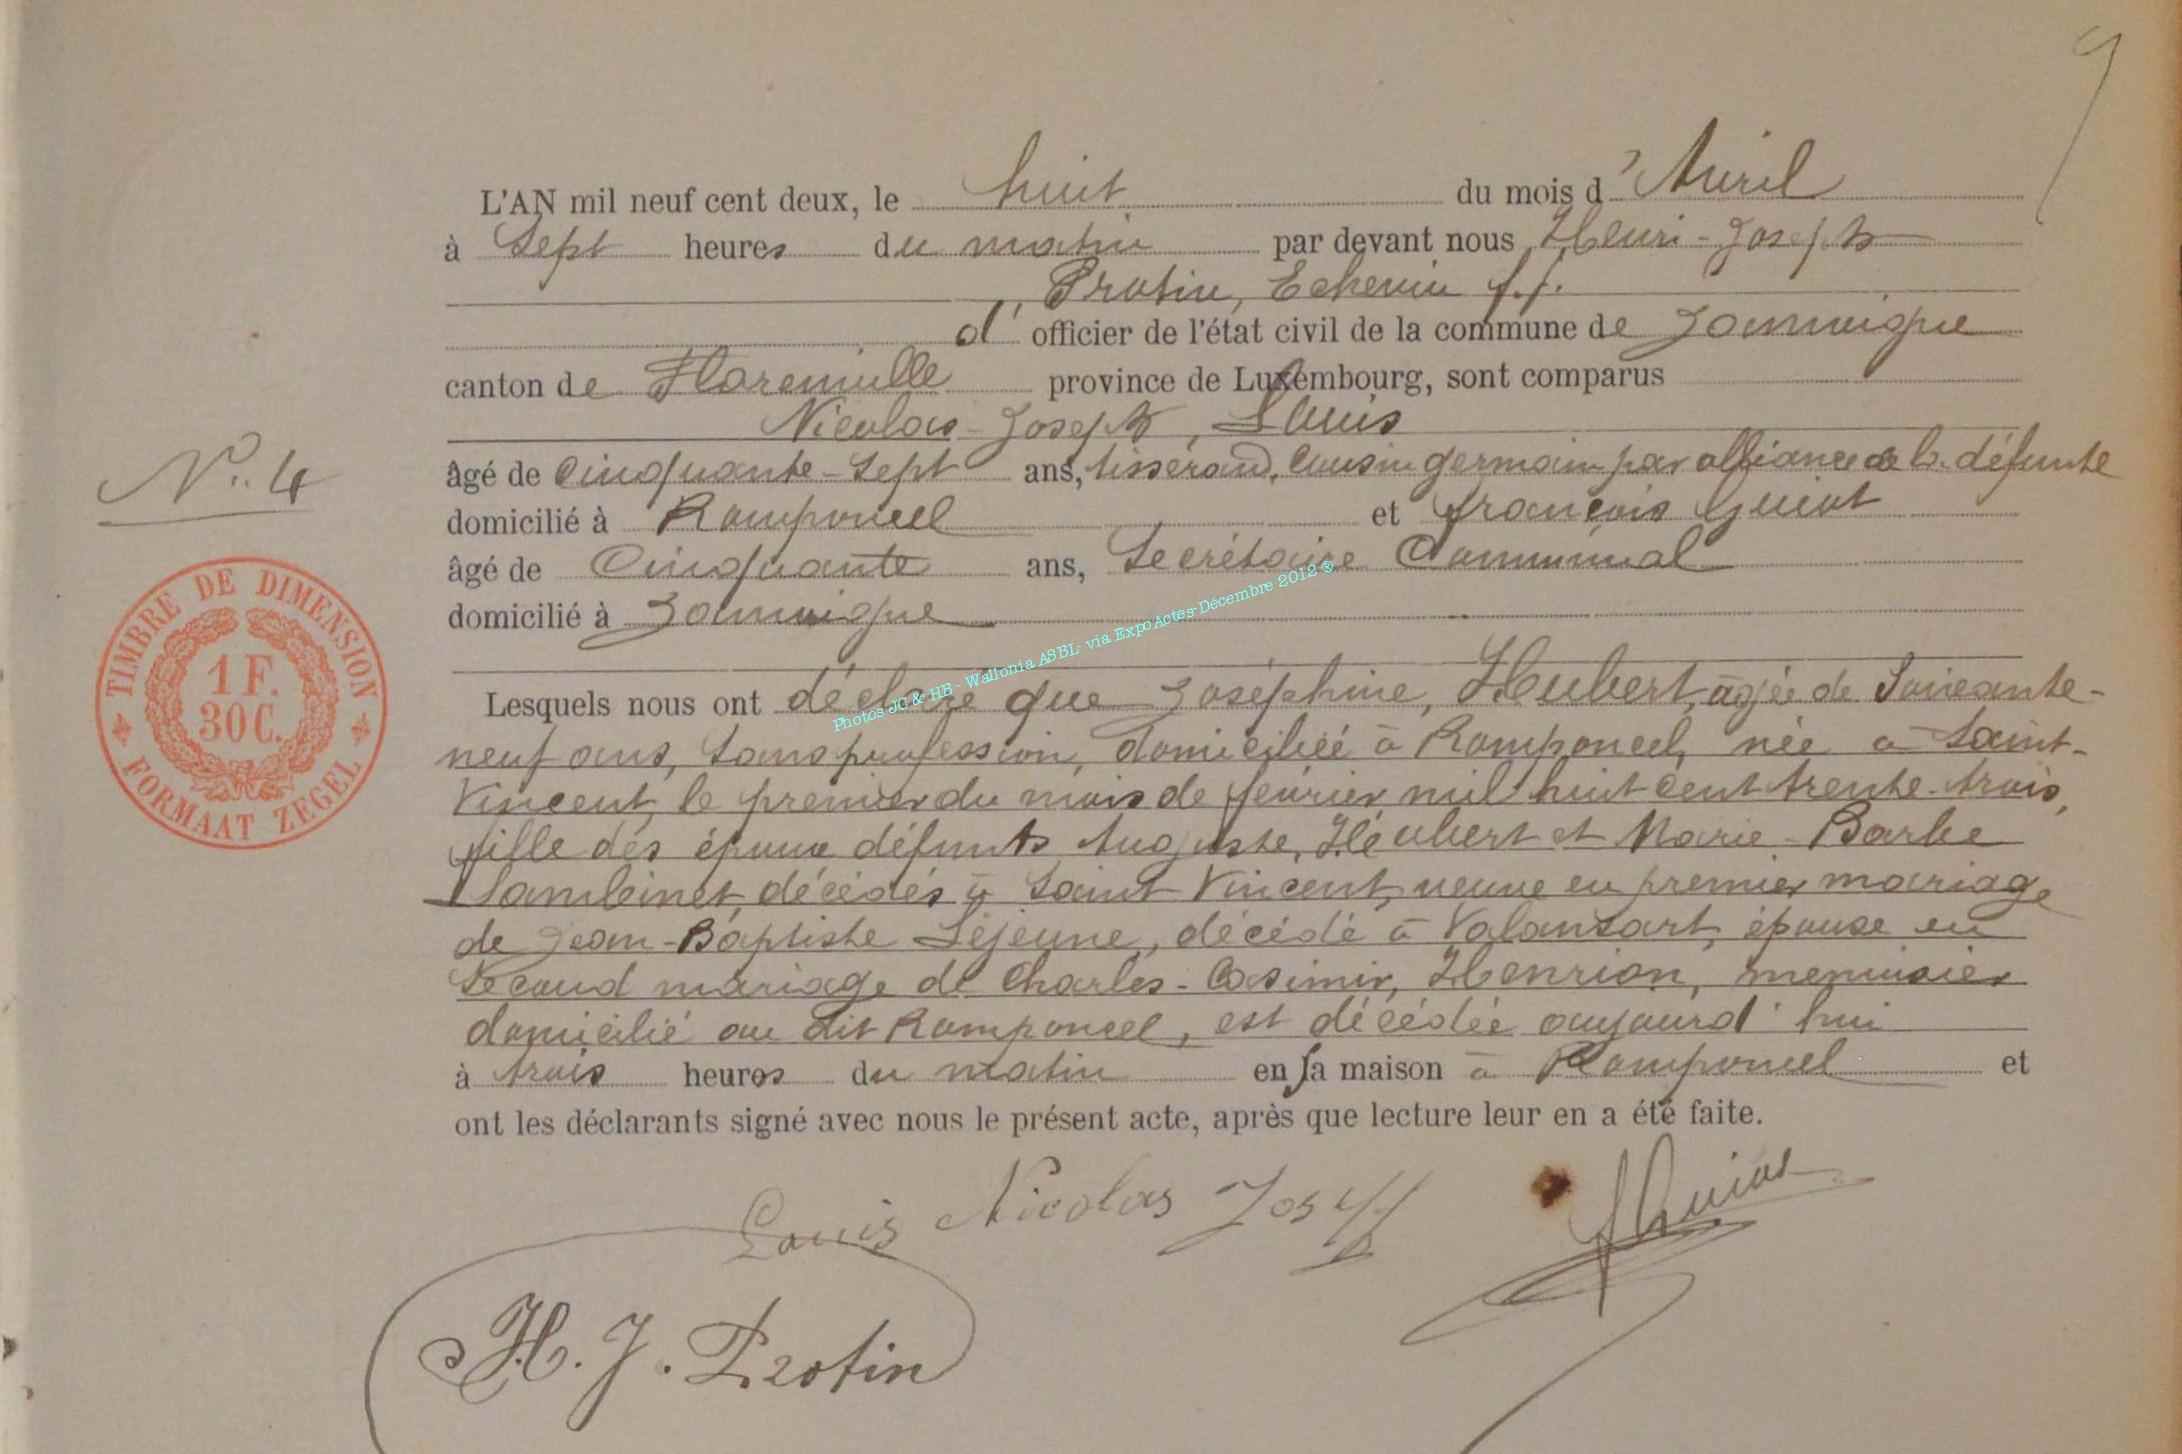 9
L'AN mil neuf cent deux, le huit du mois d'Avril
à Sept heures du matin par devant nous Henri-Joseph
Protin, Echevin f.f.
d' officier de l'état civil de la commune de Jamoigne
canton de Florenville province de Luxembourg, sont comparus
Nicolas-Joseph, Louis
âgé de Cinquante-Sept ans, tisserand, Cousin germain par alliance de la défunte
domicilié à Romponcel et François Guiot
âgé de Cinquante ans, Secrétaire Communal
domicilié à Jamoigne
N° 4
TIMBRE DE DIMENSION
1 F.
30 C.
FORMAAT ZEGEL
Lesquels nous ont déclaré que Joséphine, Hubert, âgée de Soixante-
neuf ans, Sans profession, domiciliée à Romponcel, née à Saint-
Vincent, le premier du mois de février mil huit cent trente-trois,
fille des époux défunts Auguste, Hubert et Marie-Barbe
Lambinet, décédés à Saint Vincent, veuve en premier mariage
de Jean-Baptiste Lejeune, décédé à Valansart, épouse en
Second mariage de Charles-Casimir, Henrion, menuisier
domicilié au dit Romponcel, est décédée aujourd'hui
à trois heures du matin en sa maison à Romponcel et
ont les déclarants signé avec nous le présent acte, après que lecture leur en a été faite.
Louis Nicolas Joseph
F Guiot
H. J. Protin
Photos JC & HB - Wallonia ASBL via ExpoActes-Décembre 2012 ®